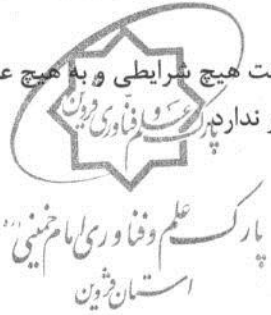 ت هیچ شرایطی و به هیچ ع
ندارد
پارک علم و فناوری قزوین
پارک علم و فناوری امام خمینی
استان قزوین